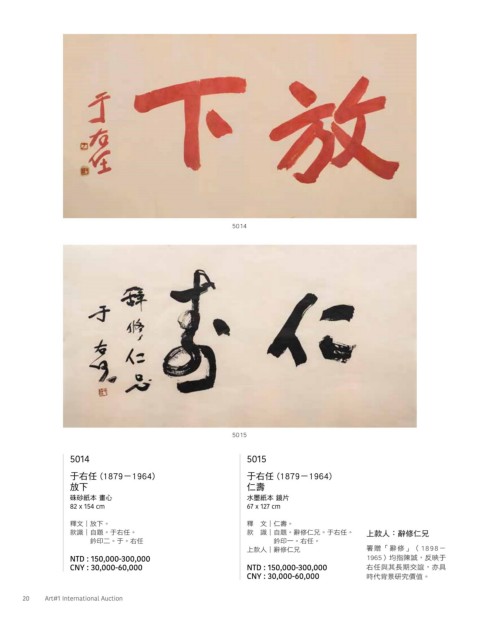 放下
于右任
5014
仁壽
辭修仁兄
于右任
5015
5014
于右任（1879－1964）
放下
硃砂紙本 畫心
82 x 154 cm
釋文｜放下。
款識｜自題，于右任。
鈐印二，于，右任
NTD : 150,000-300,000
CNY : 30,000-60,000
5015
于右任（1879－1964）
仁壽
水墨紙本 鏡片
67 x 127 cm
釋　文｜仁壽。
款　識｜自題，辭修仁兄，于右任。
鈐印一，右任。
上款人｜辭修仁兄
NTD : 150,000-300,000
CNY : 30,000-60,000
上款人：辭修仁兄
署贈「辭修」（1898－
1965）均指陳誠，反映于
右任與其長期交誼，亦具
時代背景研究價值。
20 Art#1 International Auction